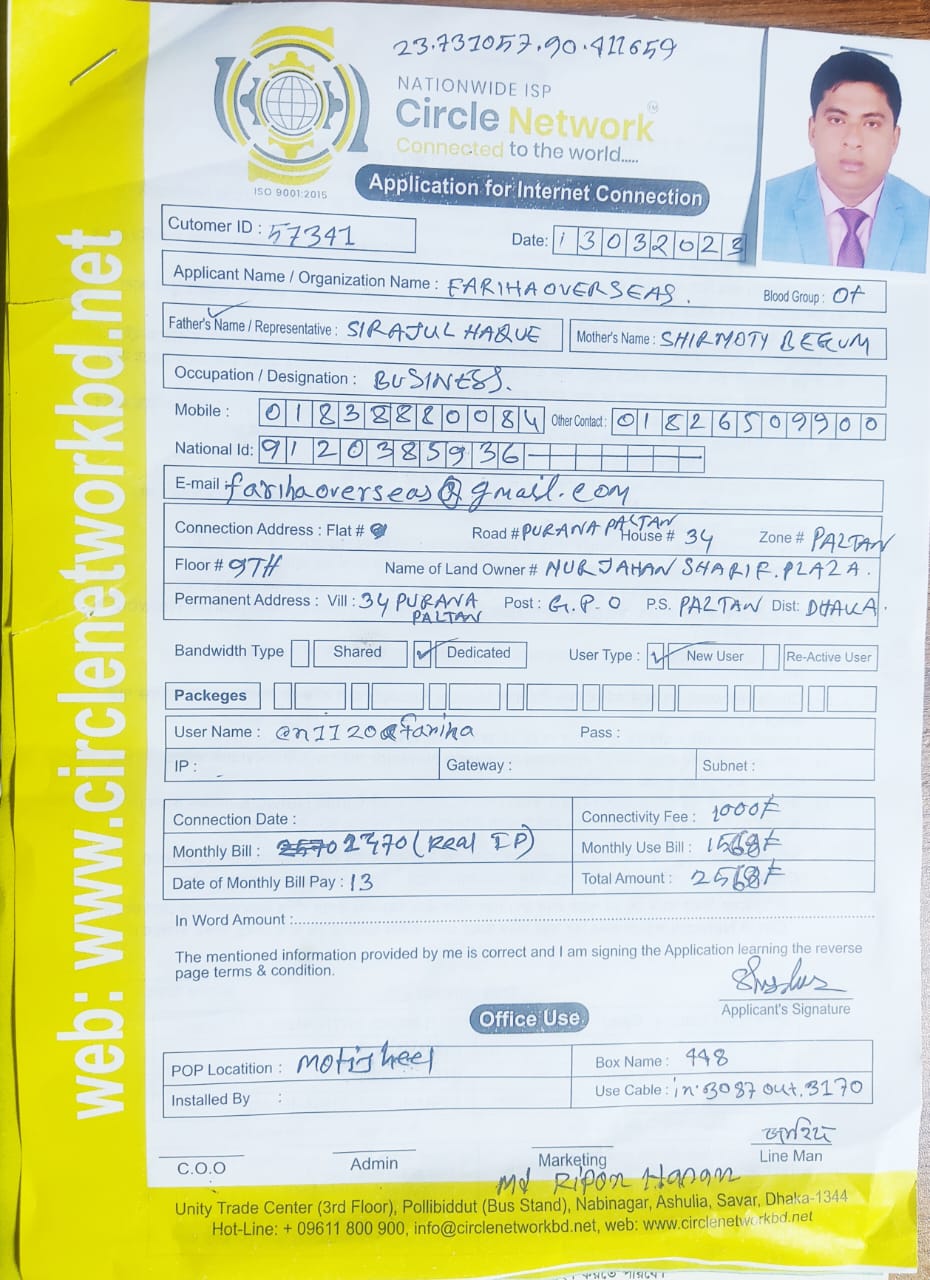 23.731057.90.411659
NATIONWIDE ISP
Circle Network
Connected to the world.....
ISO 9001:2015
Application for Internet Connection
Cutomer ID : 57341
Date: 13032023
Applicant Name / Organization Name : FARIHA OVERSEAS. Blood Group : O+
Father's Name / Representative : SIRAJUL HAQUE Mother's Name : SHIRMOTY BEGUM
Occupation / Designation : BUSINESS.
Mobile : 01838880084 Other Contact : 01826509900
National Id: 9120385936
E-mail : farihaoverseas@gmail.com
Connection Address : Flat # Road # PURANA PALTAN House # 34 Zone # PALTAN
Floor # 9TH Name of Land Owner # NURJAHAN SHARIF. PLAZA.
Permanent Address : Vill : 34 PURANA PALTAN Post : G.P.O P.S. PALTAN Dist: DHAKA.
Bandwidth Type Shared ✓ Dedicated User Type : ✓ New User Re-Active User
Packeges
User Name : @n1120@fariha Pass :
IP : Gateway : Subnet :
Connection Date : Connectivity Fee : 1000/-
Monthly Bill : 2570 2470 (Real IP) Monthly Use Bill : 1568/-
Date of Monthly Bill Pay : 13 Total Amount : 2568/-
In Word Amount :
The mentioned information provided by me is correct and I am signing the Application learning the reverse
page terms & condition.
Applicant's Signature
Office Use
POP Locatition : Motijheel Box Name : 448
Installed By : Use Cable : in.3087 out.3170
C.O.O Admin Marketing Line Man
Md Ripon Hanan
Unity Trade Center (3rd Floor), Pollibiddut (Bus Stand), Nabinagar, Ashulia, Savar, Dhaka-1344
Hot-Line: + 09611 800 900, info@circlenetworkbd.net, web: www.circlenetworkbd.net
web: www.circlenetworkbd.net